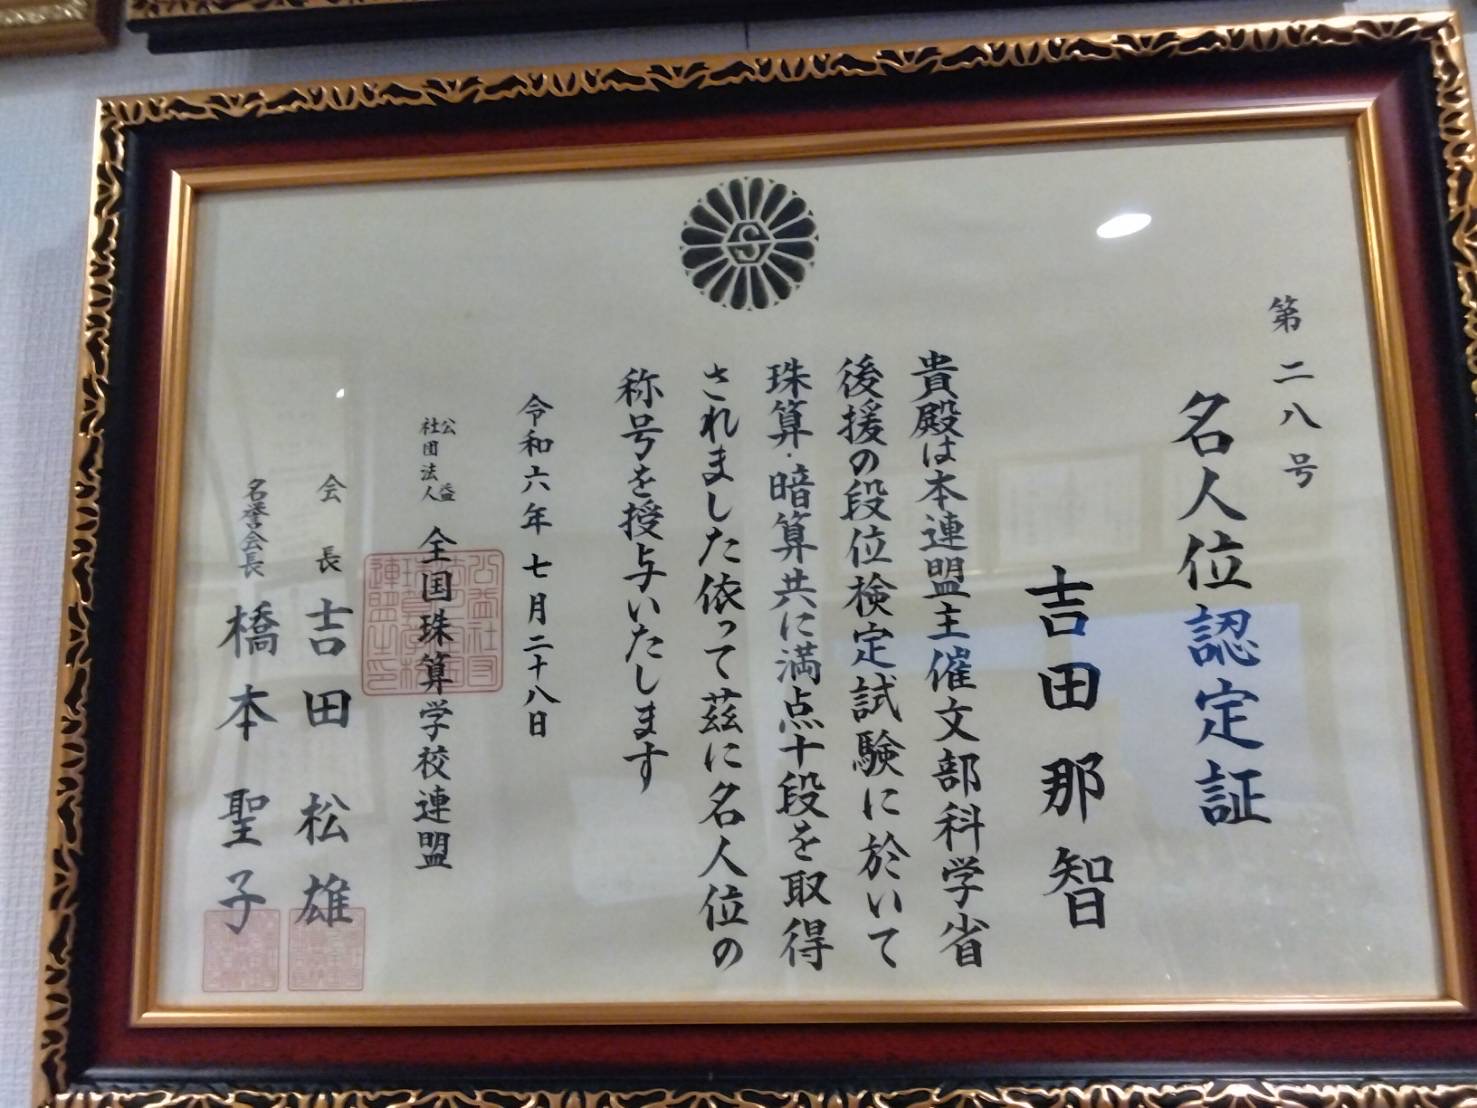 第二八号
名人位認定証
吉田那智
貴殿は本連盟主催文部科学省
後援の段位検定試験に於いて
珠算・暗算共に満点十段を取得
されました依って茲に名人位の
称号を授与いたします
令和六年七月二十八日
公益
社団法人
全国珠算学校連盟
会長 吉田松雄
名誉会長 橋本聖子